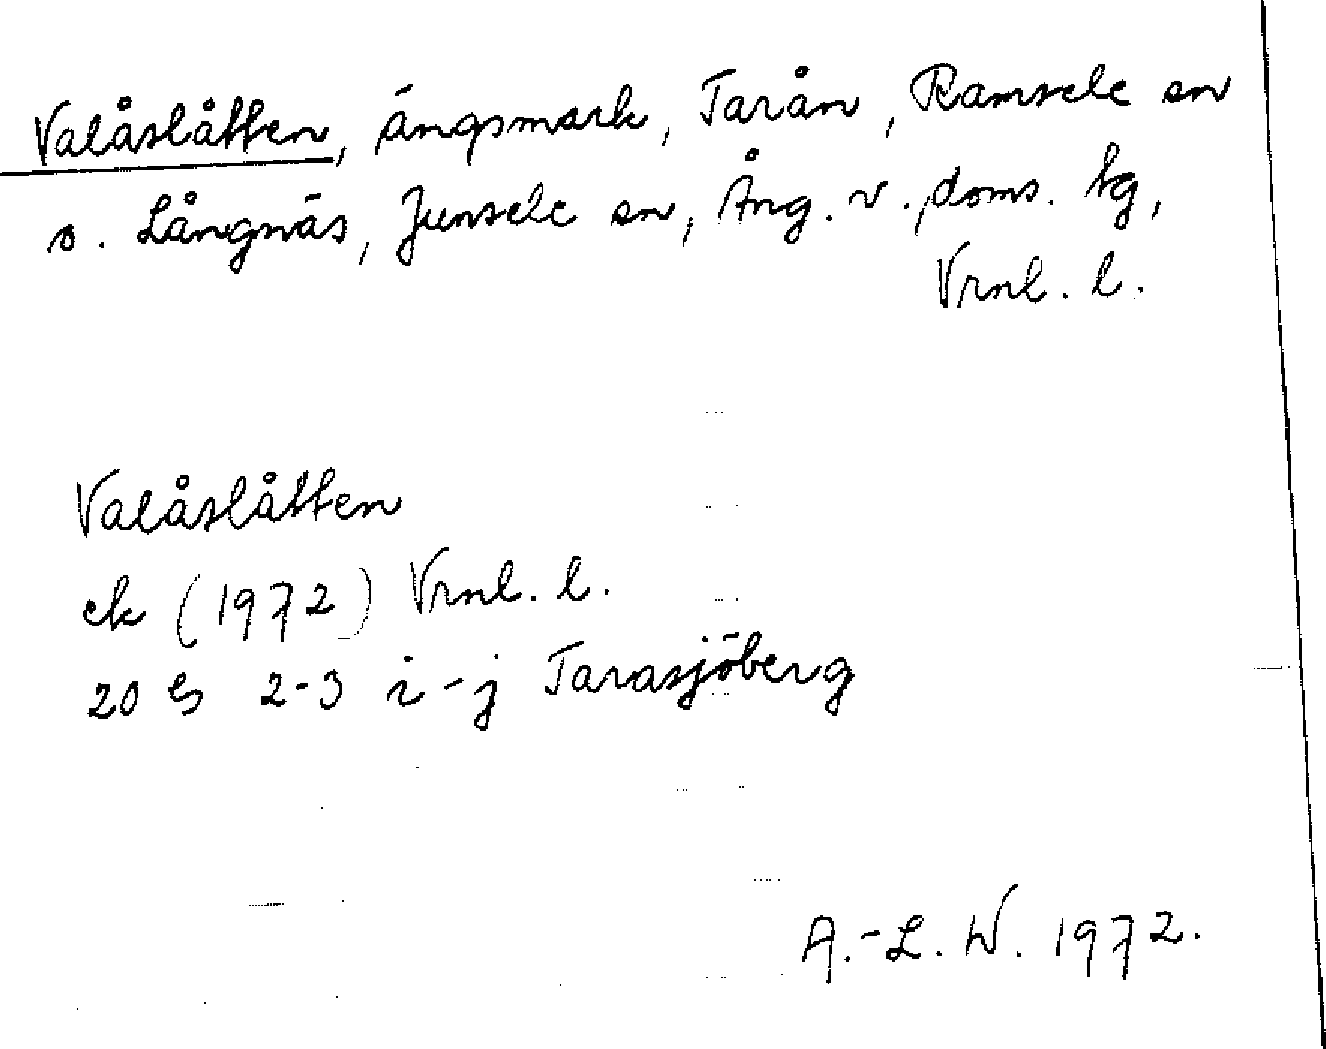 Valåslåtten, ängsmark, Tarån, Ramsele sn
o. Långnäs, Junsele sn, Ång. v. doms. tg,
Vrnl. l.
Valåslåtten
ek (1972) Vrnl. l.
20 G 2-3 i-j Tarasjöberg
A.-L. W. 1972.